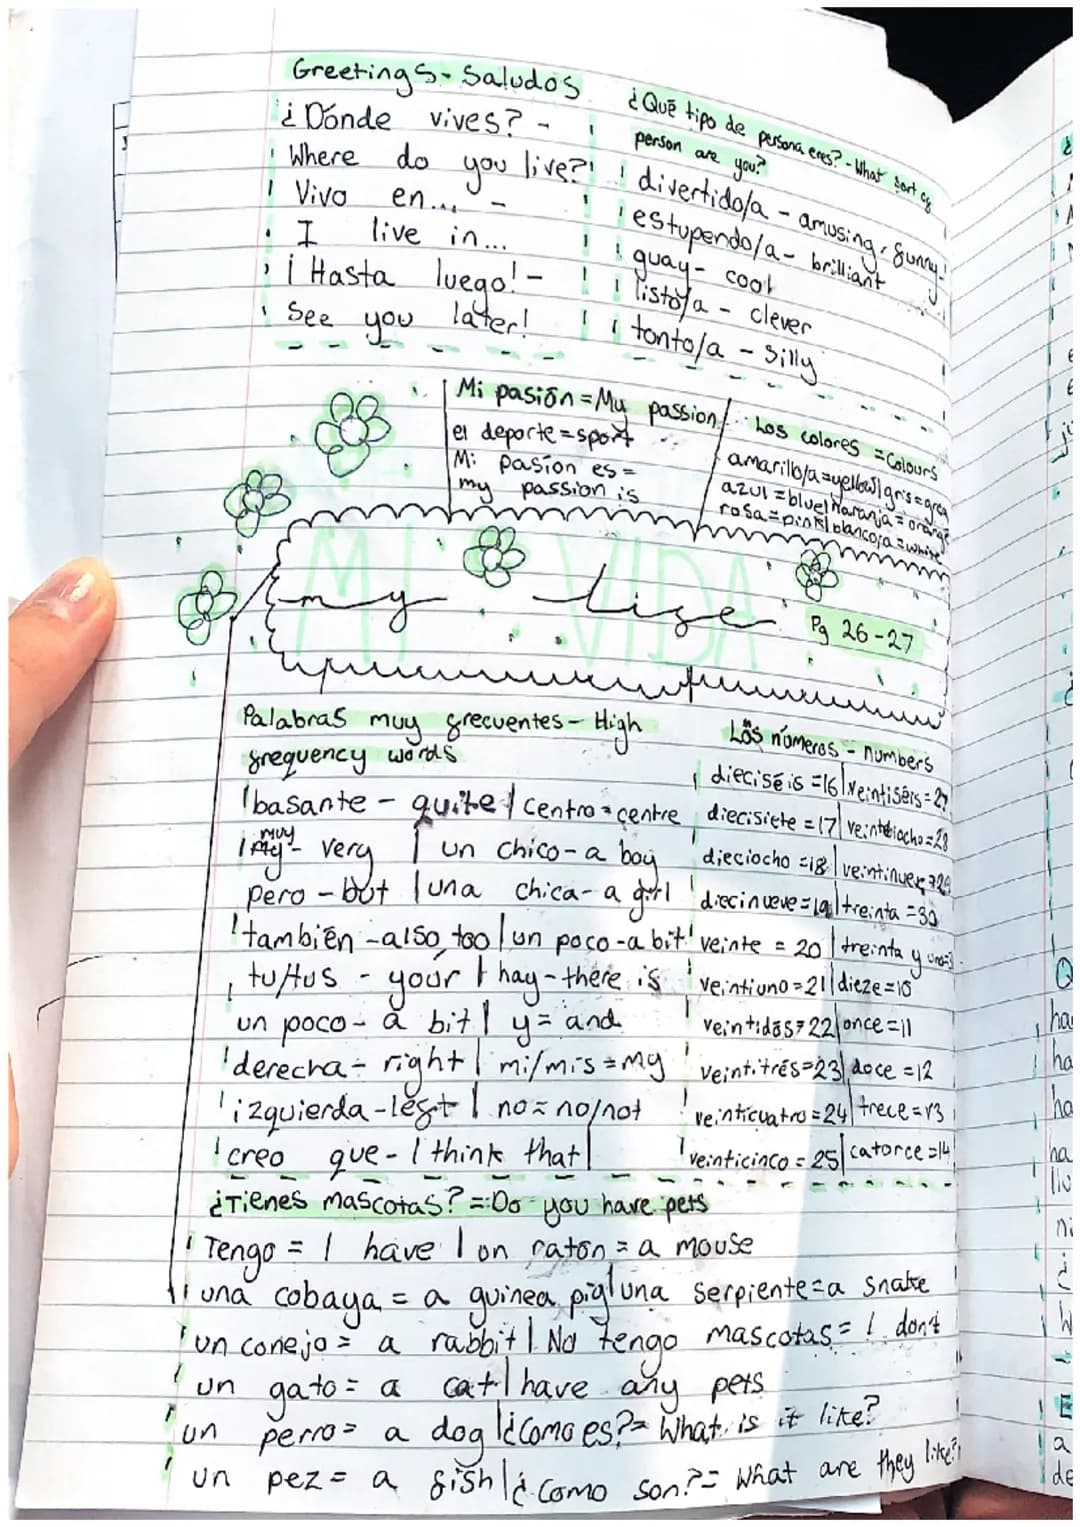 Greetings - Saludos
¿Dónde vives? -
Where do you live?
Vivo en... -
I live in...
¡Hasta luego! -
See you later!
¿Qué tipo de persona eres? - What sort of
person are you?
divertido/a - amusing, funny
estupendo/a - brilliant
guay - cool
listo/a - clever
tonto/a - silly
Mi pasión = My passion
el deporte = sport
Mi pasion es =
my passion is
Los colores = Colours
amarillo/a = yellow | gris = grey
azul = blue | naranja = orange
rosa = pink | blanco/a = white
MI VIDA
my life
Pg 26-27
Palabras muy frecuentes - High
frequency words
basante - quite | centro = centre
muy - very | un chico - a boy
pero - but | una chica - a girl
también - also, too | un poco - a bit
tu/tus - your | hay - there is
un poco - a bit | y = and
derecha - right | mi/mis = my
izquierda - left | no = no/not
creo que - I think that |
Los números - numbers
dieciséis = 16 | veintiséis =
diecisiete = 17 | veintiocho = 28
dieciocho = 18 | veintinueve = 29
diecinueve = 19 | treinta = 30
veinte = 20 | treinta y uno =
veintiuno = 21 | dieze = 10
veintidós = 22 | once = 11
veintitrés = 23 | doce = 12
veinticuatro = 24 | trece = 13
veinticinco = 25 | catorce = 14
¿Tienes mascotas? = Do you have pets
Tengo = I have | on ratón = a mouse
una cobaya = a guinea pig | una serpiente = a snake
un conejo = a rabbit | No tengo mascotas = I don't
un gato = a cat | have any pets
un perro = a dog | ¿Como es? = What is it like?
un pez = a fish | ¿Como son? = What are they like?